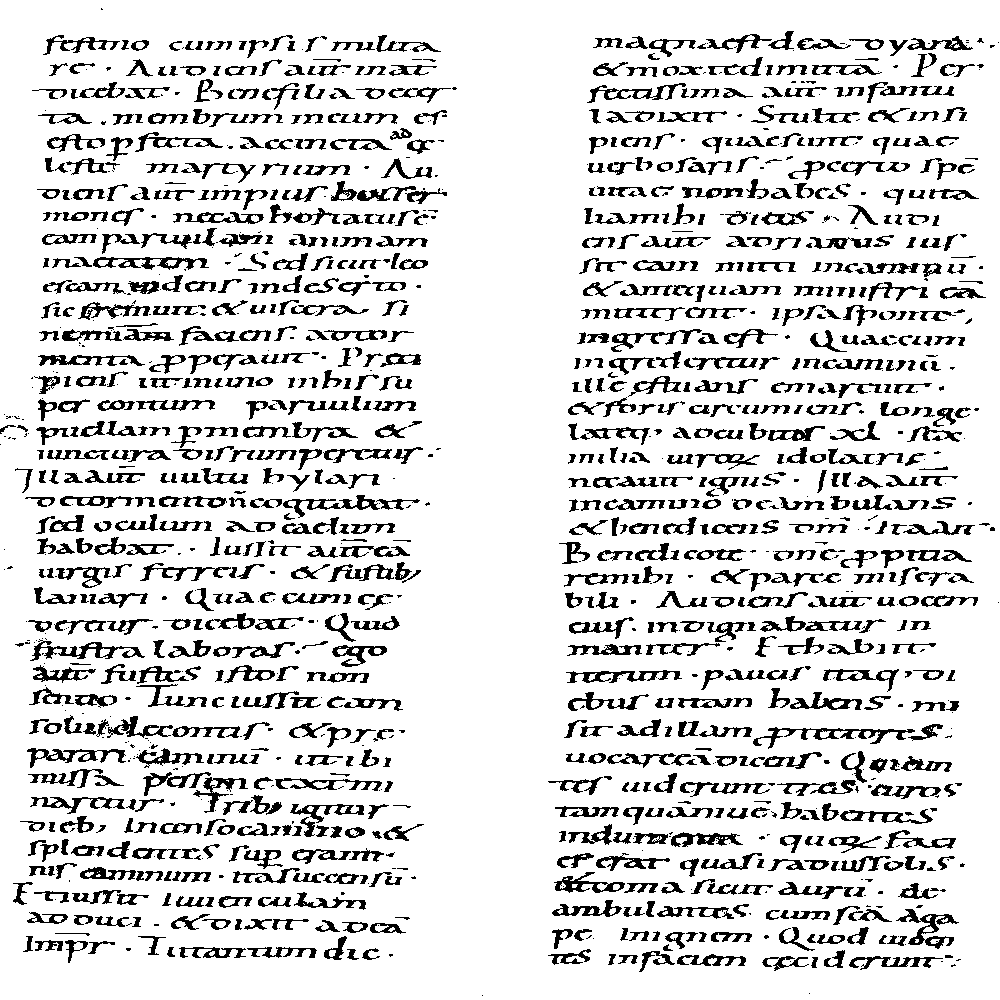 festino cum ipsis milita
re · Audiens aut̄ mat̄
dicebat · Bene filia decer
ta . membrum meum es
esto p̱fecta . accincta ad ce
leste martyrium · Au
diens aut̄ impius hos ser
mones · necad hortatus ē
eam paruulam animam
mactatem · Sed sicut leo
escam uidens in deserto ·
sic fremuit & uiscera si
ne mūam faciens . adtor
menta p̱perauit · Preci
piens ut in uno in his su
per contum paruulum
puellam p̱ membra &
iunctura disrumpertur ·
Illa aut̄ uultu hylari
de tormento n̄ cogitabat ·
sed oculum ad caelum
habebat · Iussit aut̄ eā
uirgis ferreis · & fustib;
laniari · Quae cum ce
deretur . dicebat · Quid
frustra laboras · ego
aut̄ fustes istos non
sentio · Tunc iussit eam
solui de contis · & pre
parari caminū · ut ibi
missa
naretur · Trib; igitur
dieb; incenso camino &
splendentes sup eram
nis caminum · ita succensū ·
Et iussit iuuenculam
adduci . & dixit ad eā
Imp̄r · Tu tantum dic ·
magna est dea dyana ·
& mox te dimittā · Per
fectissima aut̄ infantu
la dixit · Stulte & insi
piens · quae sunt quae
uerbosaris · p̱certo spē
uitae non habes · quita
lia mihi dicis · Audi
ens aut̄ adrianus ius
sit eam mitti in caminū ·
& antequam ministri eā
mitterent · ipsa sponte,
ingressa est · Quae cum
ingrederetur in caminū .
ille estuans emarcuit ·
& foris circumiens . longe
lateq; ad cubitos xl · sex
milia uiroꝝ idolatrie
necauit ignis · Illa aut̄
in camino deambulans ·
& benedicens dm̄ · Ita ait ·
Benedico te dnē p̱pitia
re mihi · & parce misera
bili · Audiens aut̄ uocem
eius . indignabatur in
maniter · Et habiit
iterum · paucis itaq; di
ebus uitam habens · mi
sit ad illam p̱tectores ·
uocare eā dicens · Qui eun
tes uiderunt tres uiros
tamquā niuē habentes
indumenta · quoꝝ faci
es erat quasi radius solis ·
& coma sicut aurū · de
ambulantes cum scā aga
pe in ignem · Quod uiden
tes in faciem ceciderunt ·